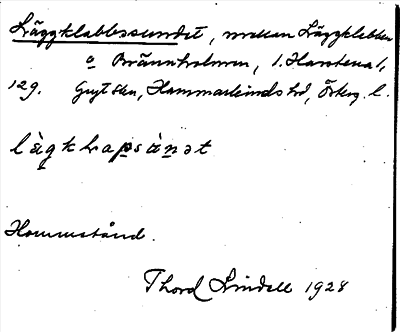 Läggklabbssundet, mellan Läggklabben
o Brännholmen, 1. Harstena 1,
129. Gryt skn, Hammarkinds hd, Österg. l.
lägkhapsànət
Hommstånd.
Thord Lindell 1928